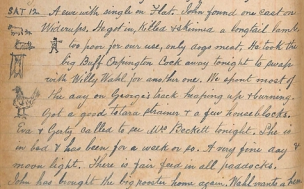 SAT 12. A ewe with single on Flat. John found one cast on
Widerups. He got in, killed & skinned a longtail lamb
too poor for our use, only dogs meat. He took the
big Buff Orpington Cock away tonight to swap
with Willy Wahl for another one. We spent most of
the day on George's track heaping up & burning.
Got a good totara strainer & a few houseblocks.
Eva & Gaty called to see Mrs Beckett tonight. She is
in bed & has been for a week or so. A very fine day &
moon light. There is fair feed in all paddocks.
John has brought the big rooster home again. Wahl wants a